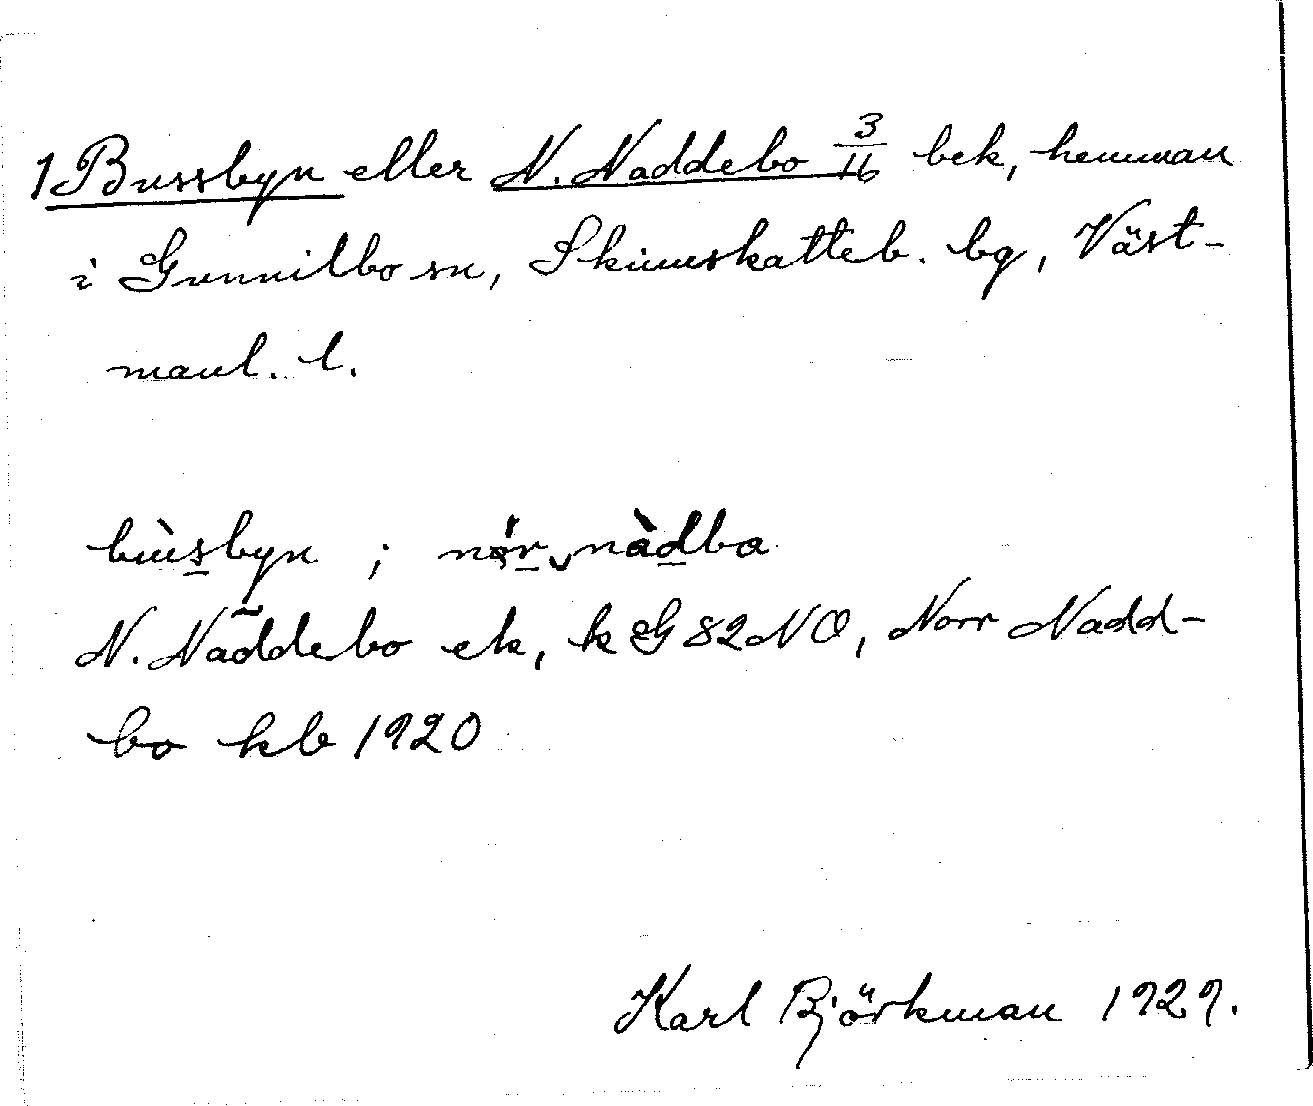 1 Bussbyn eller N. Naddebo 3/16 bek, hemman
i Gunnilbo sn, Skinnskatteb. bg, Väst-
manl. l.
bùsbyn ; nór nàdba
N. Näddebo ek, k G 82 NO, Norr Nadd-
bo kb 1920
Karl Björkman 1929.